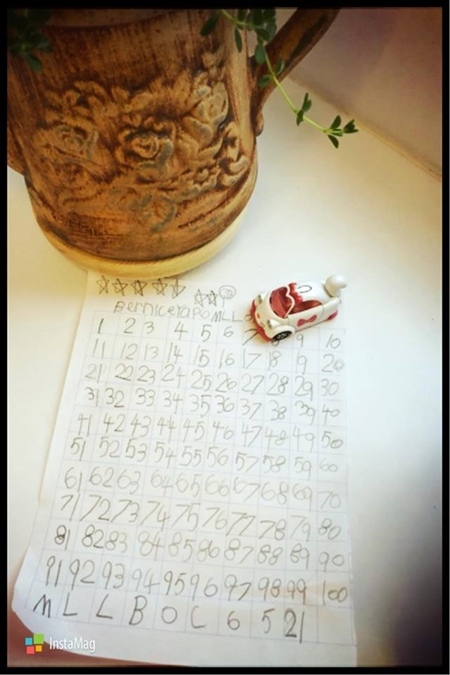 BerniceraPoMLL
1 2 3 4 5 6 7 8 9 10
11 12 13 14 15 16 17 18 19 20
21 22 23 24 25 26 27 28 29 30
31 32 33 34 35 36 37 38 39 40
41 42 43 44 45 46 47 48 49 50
51 52 53 54 55 56 57 58 59 60
61 62 63 64 65 66 67 68 69 70
71 72 73 74 75 76 77 78 79 80
81 82 83 84 85 86 87 88 89 90
91 92 93 94 95 96 97 98 99 100
M L L B O C 6 5 21
InstaMag